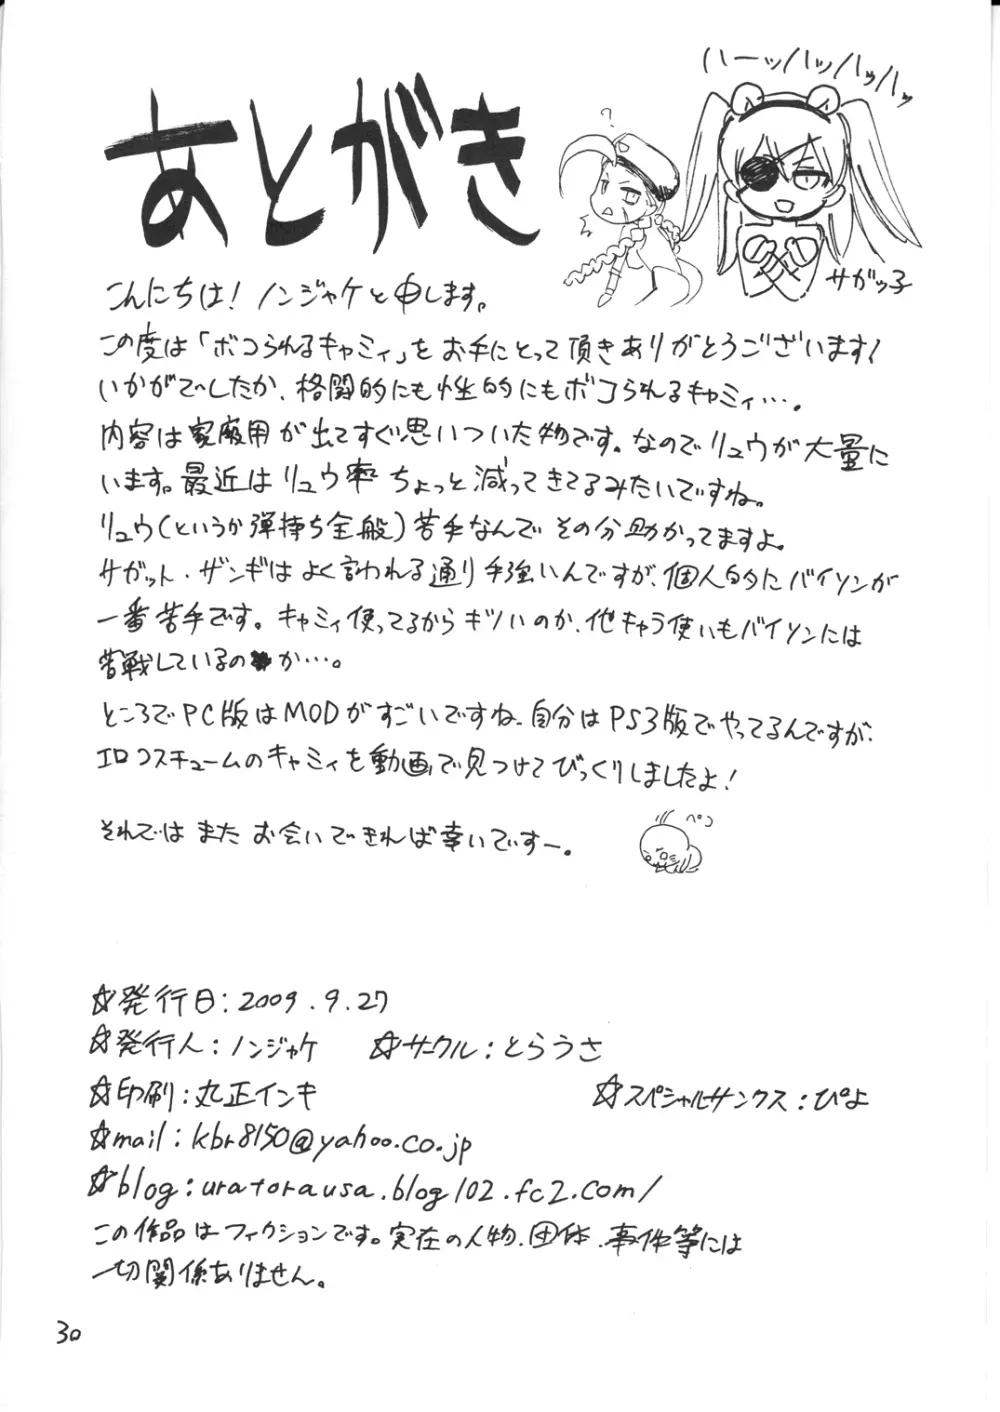 ハーッハッハッハッ
あとがき
?
サガッ子
こんにちは!ノンジャケと申します。
この度は「ボコられるキャミィ」をお手にとって頂きありがとうございます!
いかがでしたか、格闘的にも性的にもボコられるキャミィ…。
内容は家庭用が出てすぐ思いついた物です。なのでリュウが大量に
います。最近はリュウ率ちょっと減ってきてるみたいですね。
リュウ(というか弾持ち全般)苦手なんでその分助かってますよ。
サガット・ザンギはよく言われる通り手強いんですが、個人的にバイソンが
一番苦手です。キャミィ使ってるからキツいのか、他キャラ使いもバイソンには
苦戦しているのか…。
ところでPC版はMODがすごいですね、自分はPS3版でやってるんですが、
エロコスチュームのキャミィを動画で見つけてびっくりしましたよ!
それではまたお会いできれば幸いですー。
ペコ
☆発行日:2009.9.27
☆発行人:ノンジャケ ☆サークル:とらうさ
☆印刷:丸正インキ ☆スペシャルサンクス:ぴよ
☆mail:kbr8150@yahoo.co.jp
☆blog:uratorausa.blog102.fc2.com/
この作品はフィクションです。実在の人物、団体、事件等には
一切関係ありません。
30